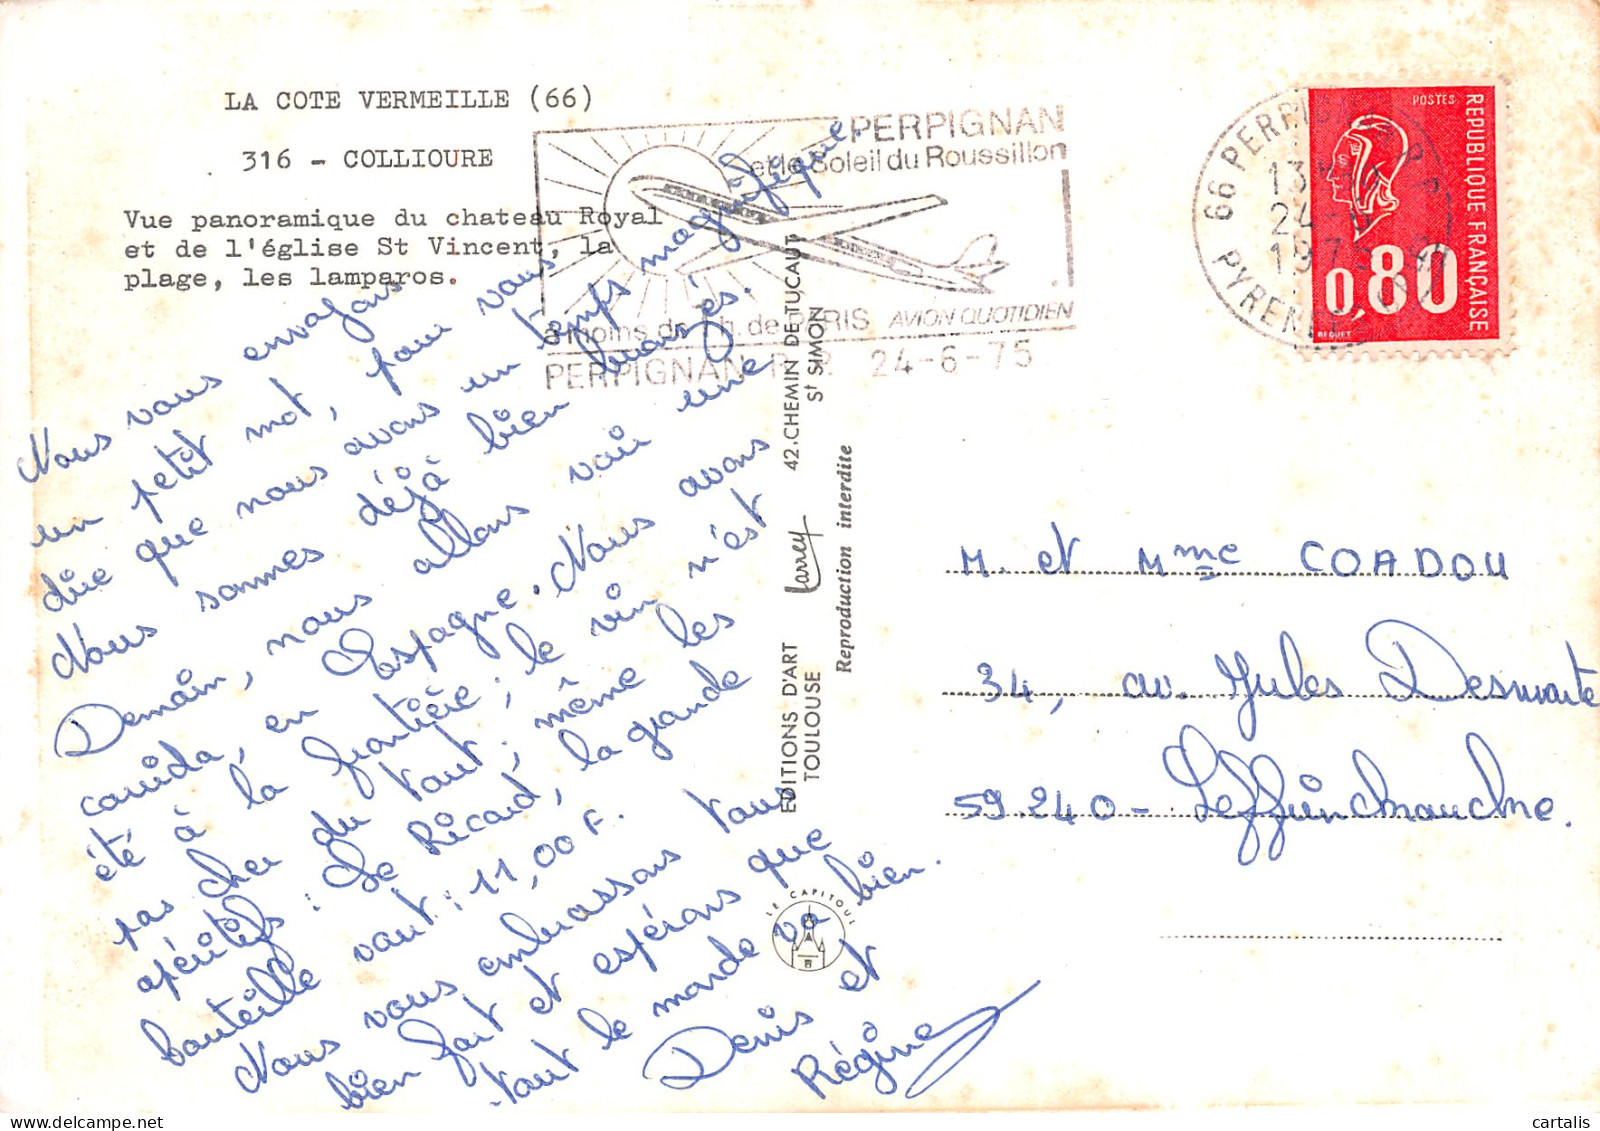 LA COTE VERMEILLE (66)
316 - COLLIOURE
Vue panoramique du chateau Royal
et de l'église St Vincent, la
plage, les lamparos.
PERPIGNAN
et le Soleil du Roussillon
à moins de 1 h. de PARIS AVION QUOTIDIEN
PERPIGNAN R.P. 24-6-75
66 PERPIGNAN R.P.
13H
24-6
1975
PYRENEES
POSTES
REPUBLIQUE FRANÇAISE
0,80
BEQUET
Nous vous envoyons
un petit mot, pour vous
dire que nous avons un temps magnifique.
Nous sommes déjà bien bronzés.
Demain, nous allons voir une
corrida, en Espagne. Nous avons
été à la frontière; le vin n'est
pas cher du tout; même les
apéritifs: Le Ricard, la grande
bouteille vaut: 11,00 F.
Nous vous embrassons tous
bien fort et espérons que
tout le monde va bien.
Denis et
Régine
EDITIONS D'ART Larrey 42.CHEMIN DE TUCAUT
TOULOUSE St SIMON
Reproduction interdite
LE CAPITOUL
M. et Mme COADOU
34, av. Jules Desmarte
59.240 - Leffrinchoucke.
cartalis
delcampe.net